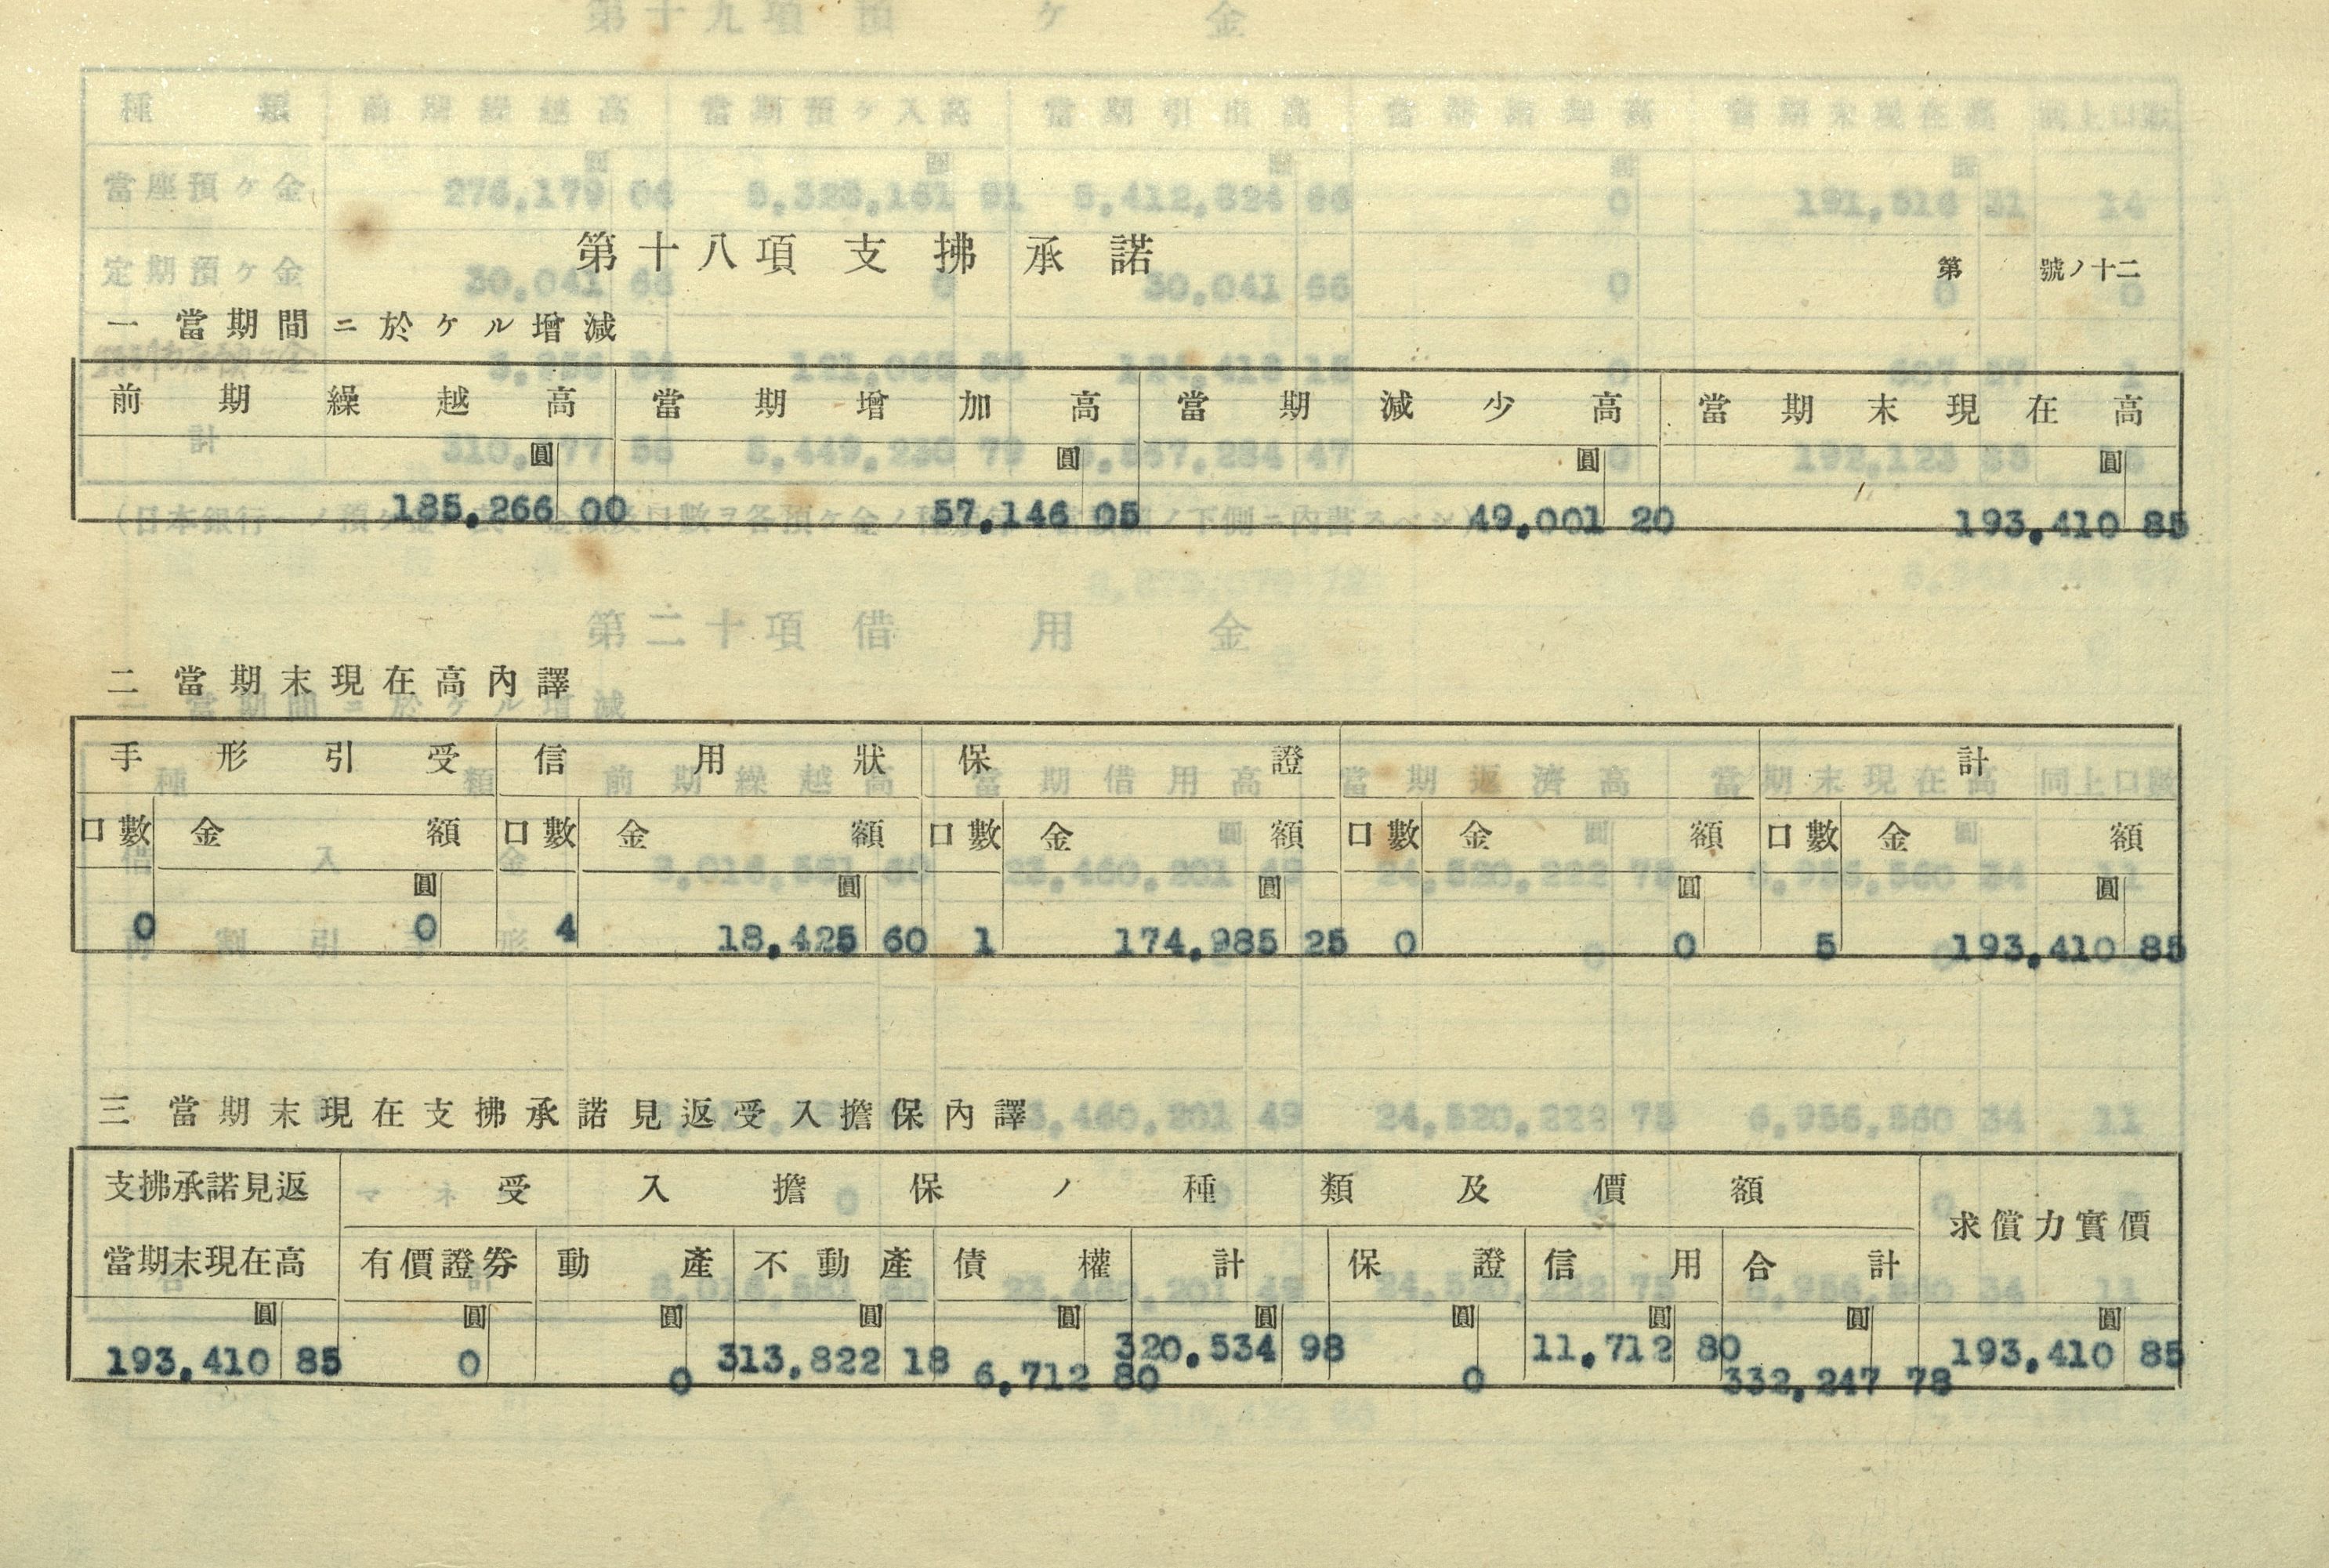 第十八項 支拂承諾
第 號ノ十二
一 當期間ニ於ケル增減
前期繰越高 當期增加高 當期減少高 當期末現在高
圓 圓 圓 圓
185,266 00 57,146 05 49,001 20 193,410 85
二 當期末現在高內譯
手形引受 信用狀 保證 計
口數 金額 口數 金額 口數 金額 口數 金額 口數 金額
圓 圓 圓 圓 圓
0 0 4 18,425 60 1 174,985 25 0 0 5 193,410 85
三 當期末現在支拂承諾見返受入擔保內譯
支拂承諾見返 受入擔保ノ種類及價額 求償力實價
當期末現在高 有價證券 動產 不動產 債權 計 保證 信用 合計
圓 圓 圓 圓 圓 圓 圓 圓 圓 圓
193,410 85 0 0 313,822 18 6,712 80 320,534 98 0 11,712 80 332,247 78 193,410 85